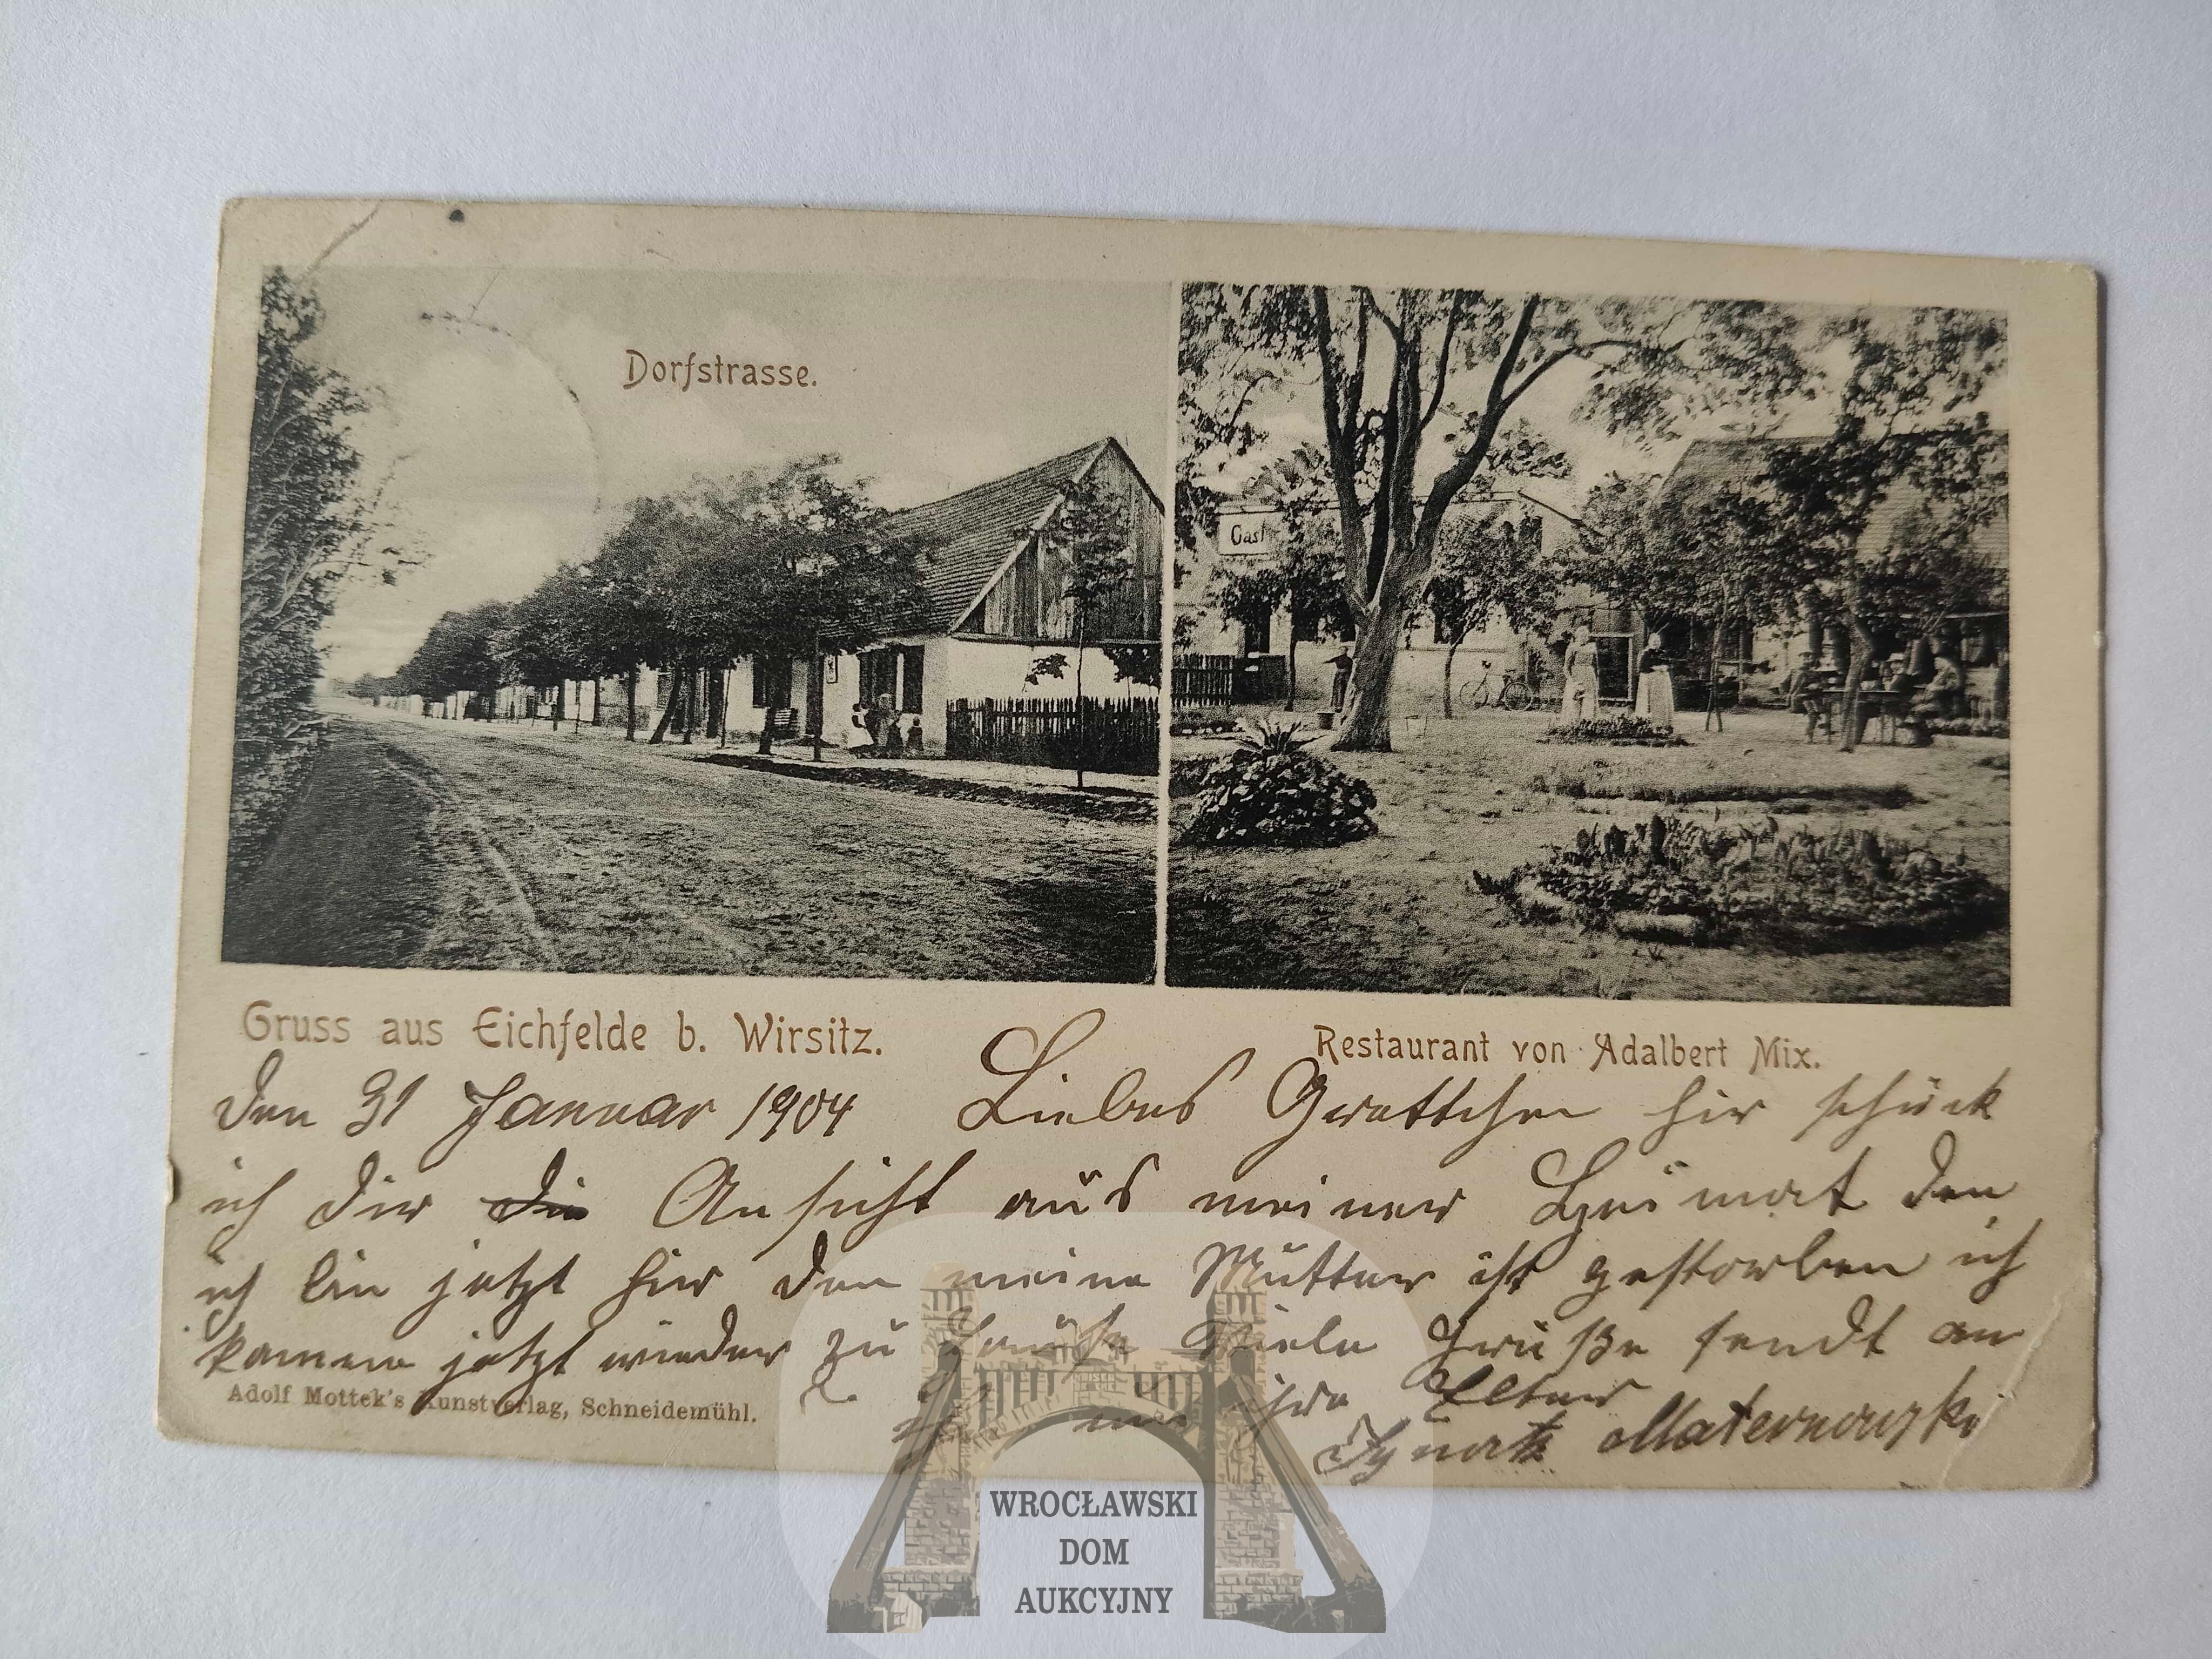 Dorfstrasse.
Gast
Gruss aus Eichfelde b. Wirsitz.
Restaurant von Adalbert Mix.
Den 31 Januar 1904 Liebes Grettchen hir schück
ich dir die Ansicht aus meiner Heimat den
ich bin jetzt hir den meine Mutter ist gestorben ich
kamme jetzt wieder zu Hause Viele Grüße sendt an
ihre Elter
Adolf Mottek's Kunstverlag, Schneidemühl.
Ignatz Maternowski
WROCŁAWSKI
DOM
AUKCYJNY